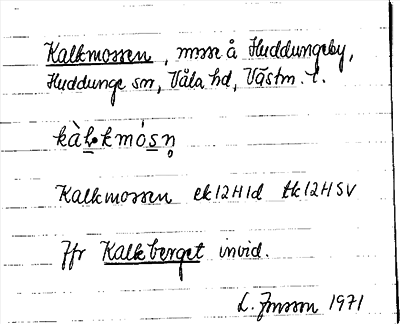 Kalkmossen, mosse å Huddungeby,
Huddunge sn, Våla hd, Västm. l.
kàḷ·kmósn̥
Kalkmossen ek 12H1d tk 12H SV
Jfr Kalkberget invid.
L. Jonsson 1971